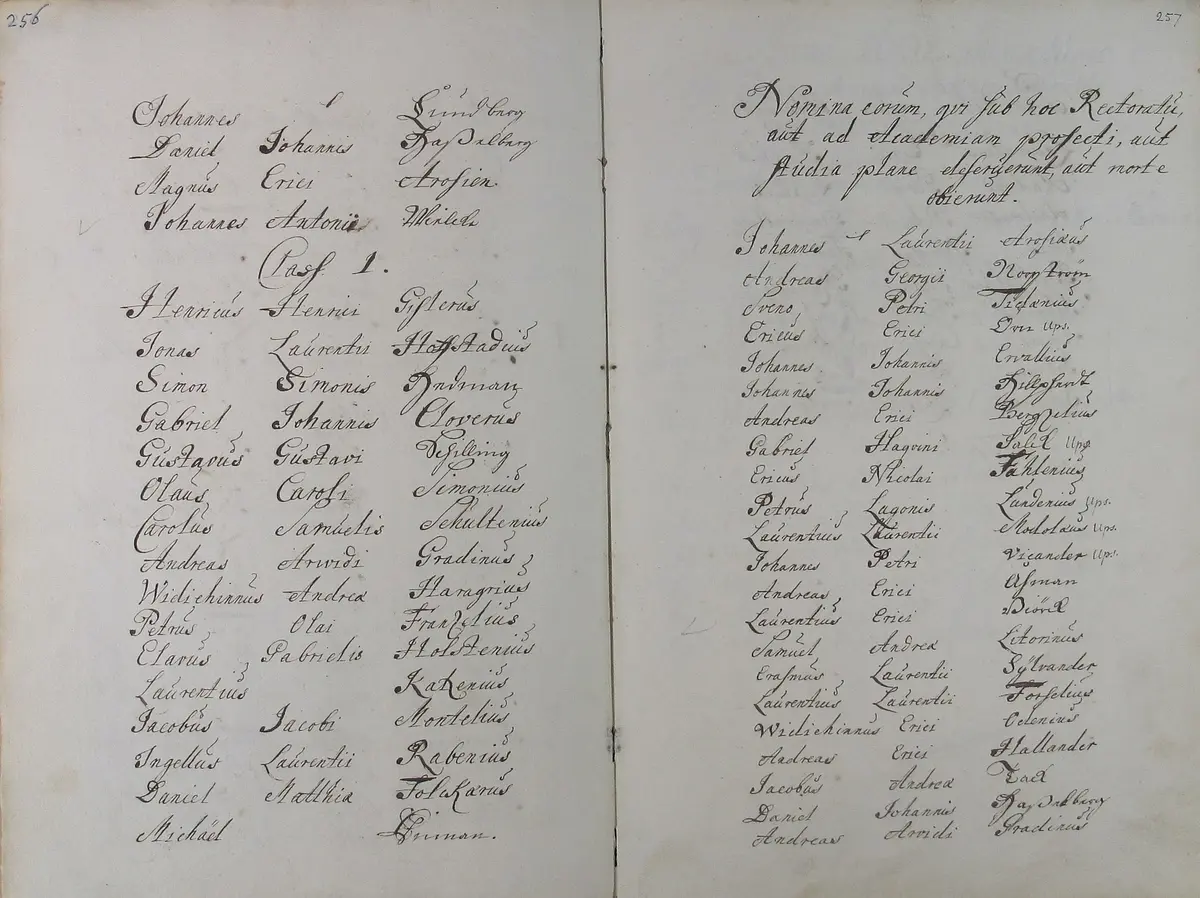 256
Johannes Lundberg
Daniel Johannis Haßelberg
Magnus Erici Arosien.
Johannes Antonii
Class. 1.
Henricus Henrici Gisterus
Jonas Laurentii Hoffstadius
Simon Simonis Hedman
Gabriel Johannis Cloverus
Gustavus Gustavi Schilling
Olaus Caroli Simonius
Carolus Samuelis Schultenius
Andreas Arwidi Gradinus
Widichinnus Andreæ Haragrius
Petrus Olai Franzelius
Elavus Gabrielis Holstenius
Laurentius Kahenius
Jacobus Jacobi Montelius
Ingellus Laurentii Rabenius
Daniel Matthiæ Folckarus
Michaël
257
Nomina eorum, qvi sub hoc Rectoratu,
aut ad Academiam profecti, aut
studia plane deseruerunt, aut morte
obierunt.
Johannes Laurentii Arosiæus
Andreas Georgii Norström
Sveno Petri Tidænius
Ericus Erici Ups.
Johannes Johannis Ervallius
Johannes Johannis Hillphardt
Andreas Erici Bergelius
Gabriel Haqvini Ups.
Ericus Nicolai Fahlenius
Petrus Lagonis Lundenius Ups.
Laurentius Laurentii Ups.
Johannes Petri Vicander Ups.
Andreas Erici Aßman
Laurentius Erici Biörck
Samuel Andreæ Litorinus
Erasmus Laurentii Sylvander
Laurentius Laurentii Forselius
Widichinnus Erici Odenius
Andreas Erici Hallander
Jacobus Andreæ
Daniel Johannis Haßelberg
Andreas Arvidi Gradinus